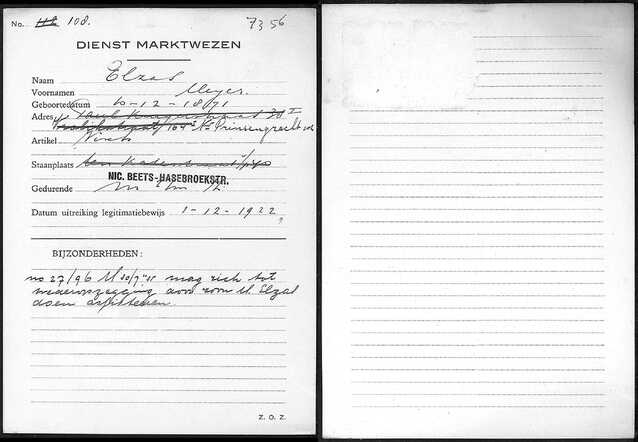 No. 112 108.
7356
DIENST MARKTWEZEN
Naam Elzas
Voornamen Meyer.
Geboortedatum 10-12-1871
Adres Paul Krugerstraat 20 II
104 I N. Prinsengracht
Artikel Visch
Staanplaats ten Katestraat
NIC. BEETS-HASEBROEKSTR.
Gedurende m t/m
Datum uitreiking legitimatiebewijs 1-12-1922
BIJZONDERHEDEN:
no 27/96 M 20/7 mag zich tot
wederopzegging door zoon M. Elzas
doen assisteeren.
Z. O. Z.